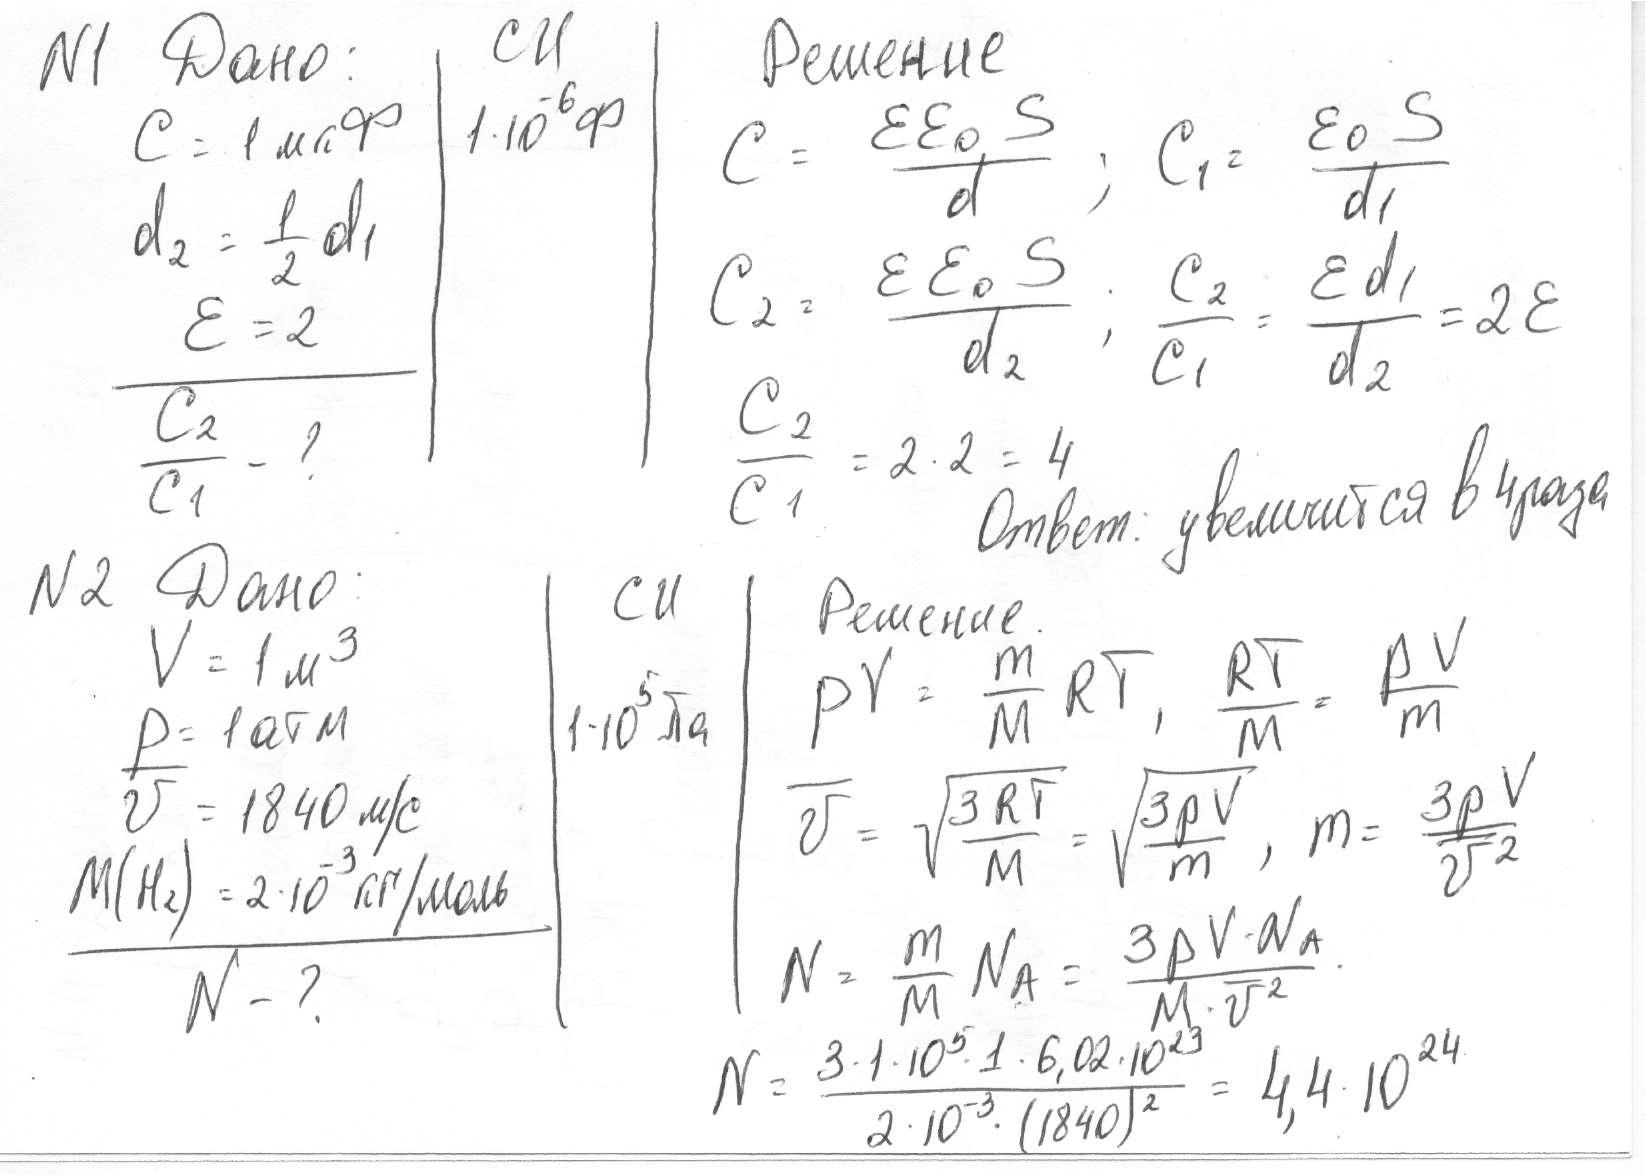 N1 Дано:
C = 1 мкФ
d₂ = 1/2 d₁
ε = 2
C₂/C₁ - ?
СИ
1·10⁻⁶ Ф
Решение
C = εε₀S/d ; C₁ = ε₀S/d₁
C₂ = εε₀S/d₂ ; C₂/C₁ = εd₁/d₂ = 2ε
C₂/C₁ = 2·2 = 4
Ответ: увеличится в 4 раза
N2 Дано:
V = 1 м³
p = 1 атм
v̅ = 1840 м/с
M(H₂) = 2·10⁻³ кг/моль
N - ?
СИ
1·10⁵ Па
Решение.
pV = m/M RT, RT/M = pV/m
v̅ = √(3RT/M) = √(3pV/m), m = 3pV/v̅²
N = m/M N_A = 3pV·N_A/(M·v̅²).
N = 3·1·10⁵·1·6,02·10²³/(2·10⁻³·(1840)²) = 4,4·10²⁴